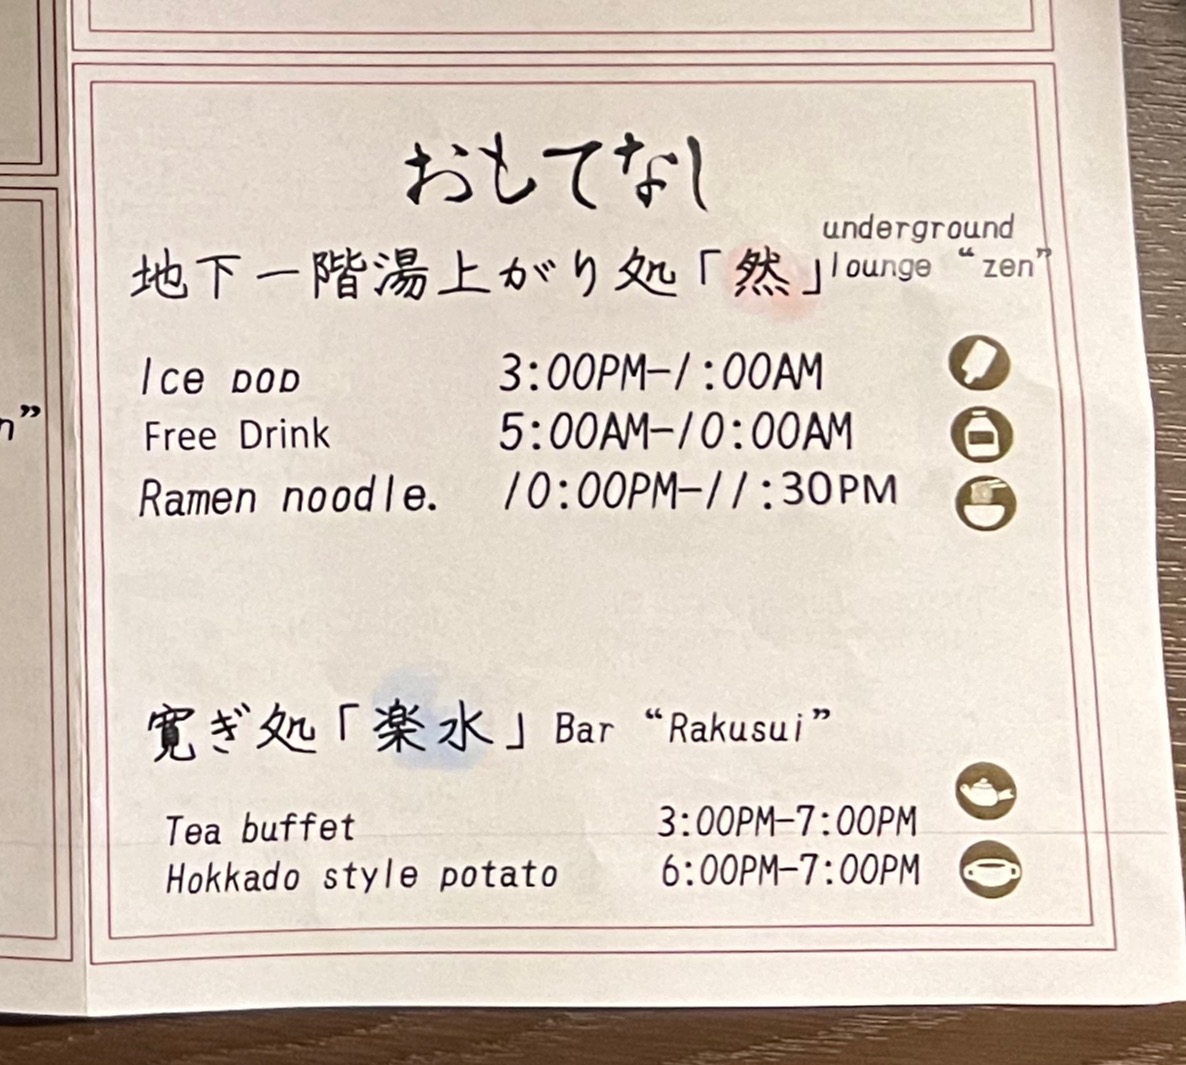 おもてなし
underground
地下一階湯上がり処「然」lounge “zen”
Ice pop 3:00PM-1:00AM
Free Drink 5:00AM-10:00AM
Ramen noodle. 10:00PM-11:30PM
n”
寛ぎ処「楽水」Bar “Rakusui”
Tea buffet 3:00PM-7:00PM
Hokkado style potato 6:00PM-7:00PM